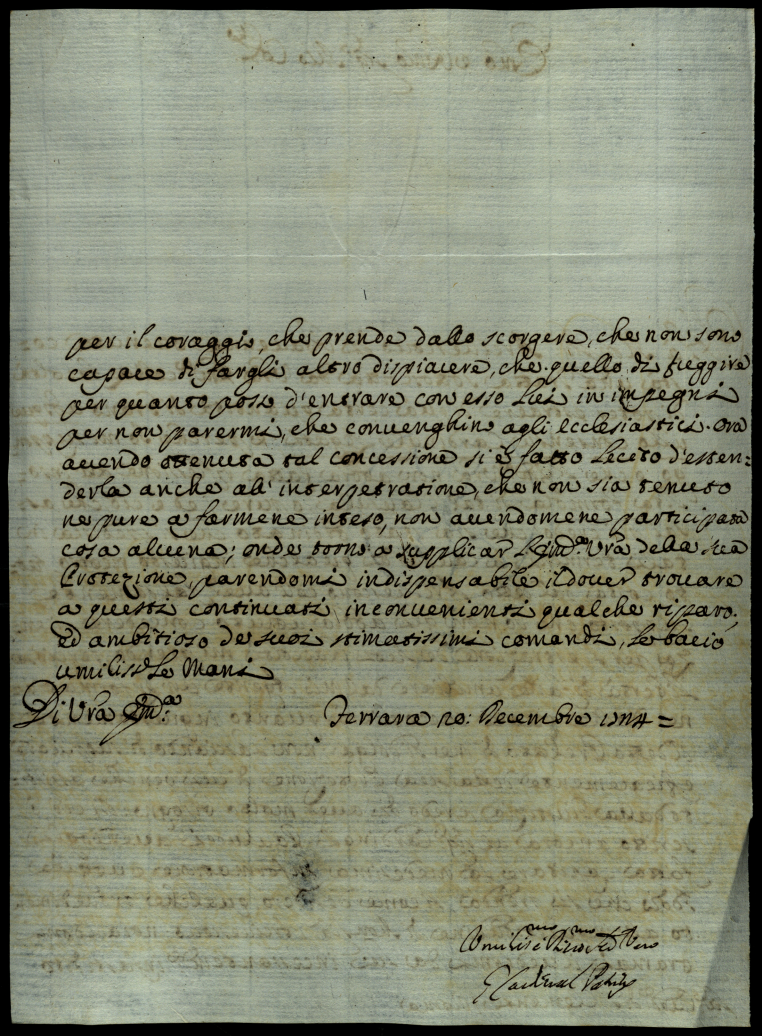 per il coraggio, che prende dallo scorgere, che non sono
capace di fargli altro dispiacere, che quello di fuggire
per quanto posso d'entrare con esso Lui in impegni
per non parermi, che convenghino agli ecclesiastici. Ora
avendo ottenuta tal concessione si è fatto lecito d'esten=
derla anche all'interpetratione, che non sia tenuto
ne pure a farmene inteso, non avendomene participata
cosa alcuna; onde torno a supplicar l'Em.ª Vrã della sua
Protezione, parendomi indispensabile il dover trovare
a questi continuati inconvenienti qualche riparo;
ed ambitioso de suoi stimatissimi comandi, le bacio
umiliss.e le Mani
Di Vrã Em.ª Ferrara 20: Decembre 1724=
Umiliss.mo Ser.re Vero
Il Cardinal